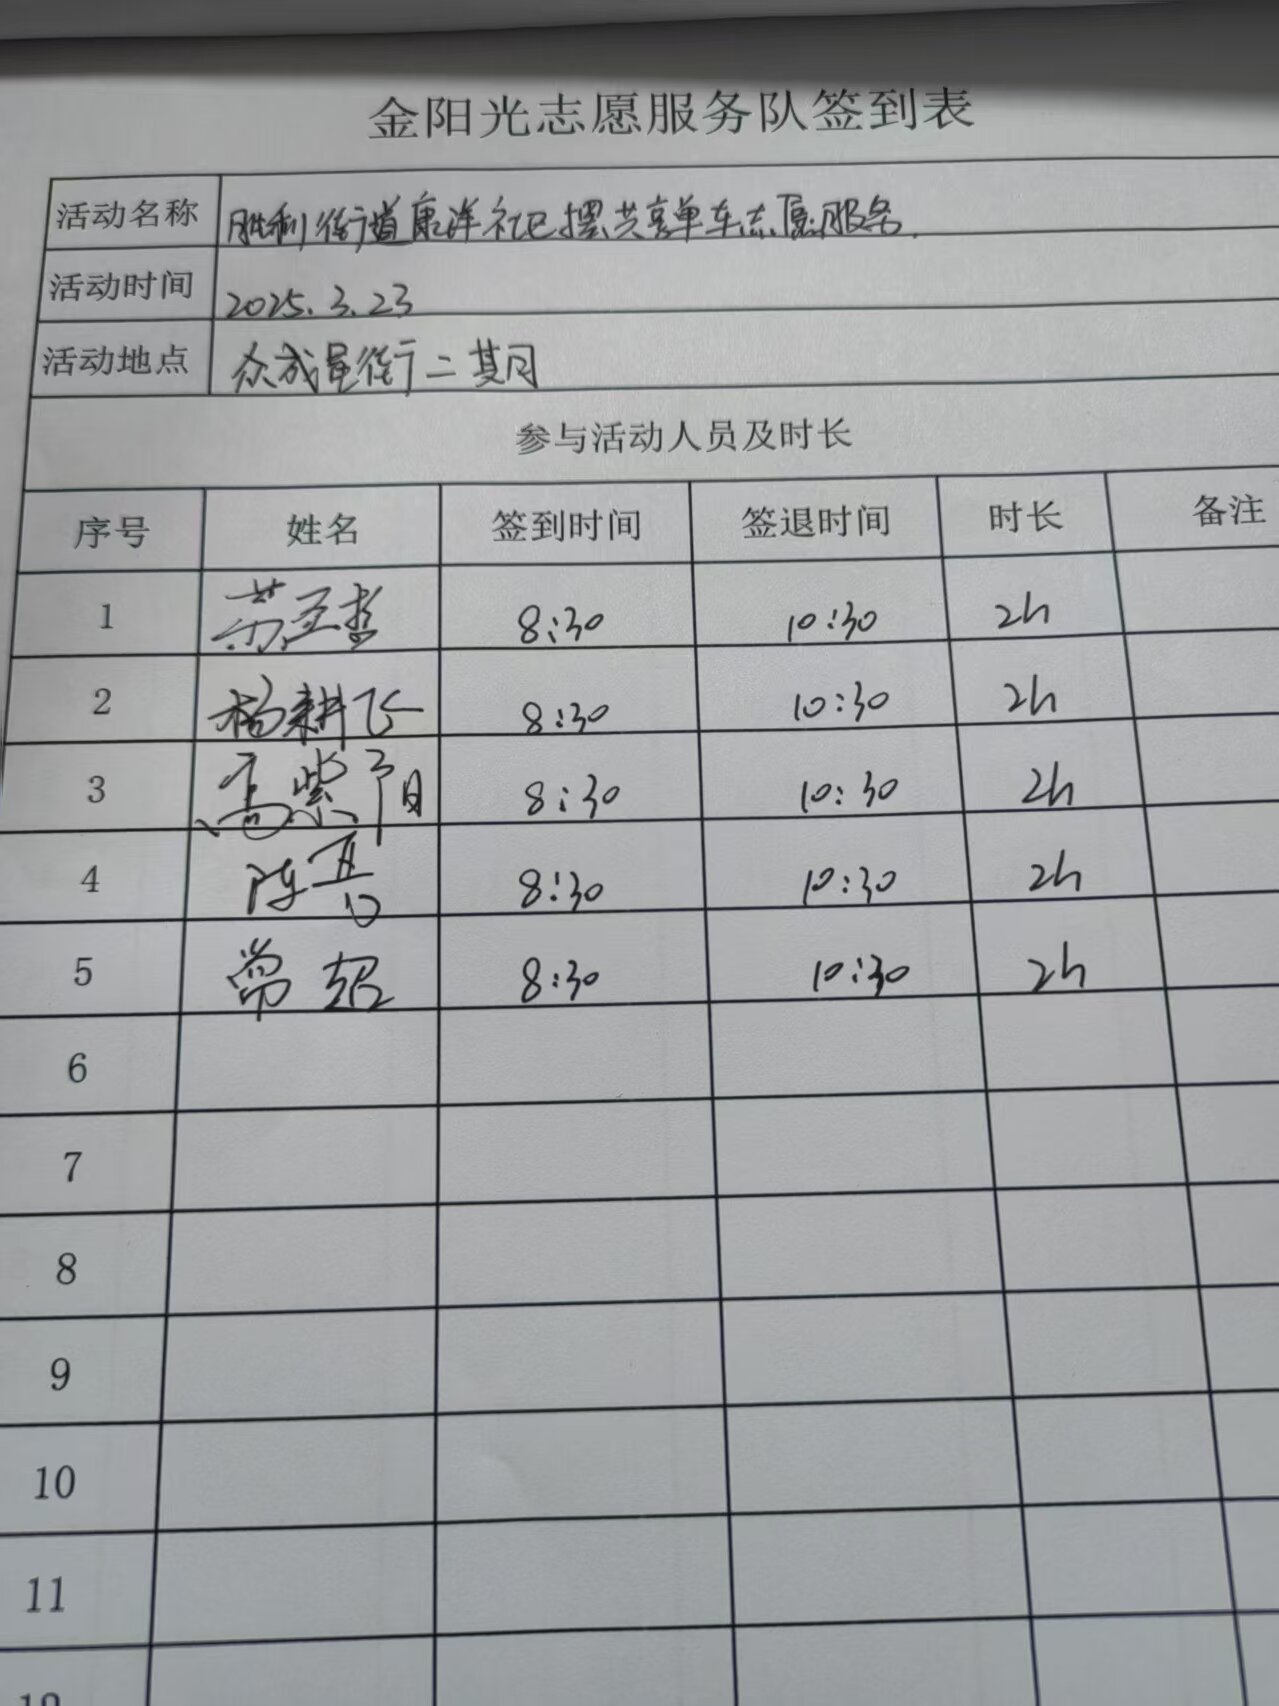 金阳光志愿服务队签到表
活动名称 胜利街道康洋社区摆共享单车志愿服务.
活动时间 2025.3.23
活动地点 众成里街二期
参与活动人员及时长
序号 姓名 签到时间 签退时间 时长 备注
1 苏圣哲 8:30 10:30 2h
2 杨耕飞 8:30 10:30 2h
3 高紫阳 8:30 10:30 2h
4 陈 8:30 10:30 2h
5 常超 8:30 10:30 2h
6
7
8
9
10
11